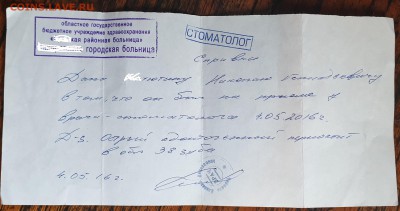 COINSS.LAVE.RU
областное государственное
бюджетное учреждение здравоохранения
районная больница»
городская больница»
СТОМАТОЛОГ
Справка
Дана Николаю
в том, что он был на приеме у
врача-стоматолога 1.05.2016г.
Д-з. Острый одонтогенный периостит
в обл. 38 зуба
4.05.16г.